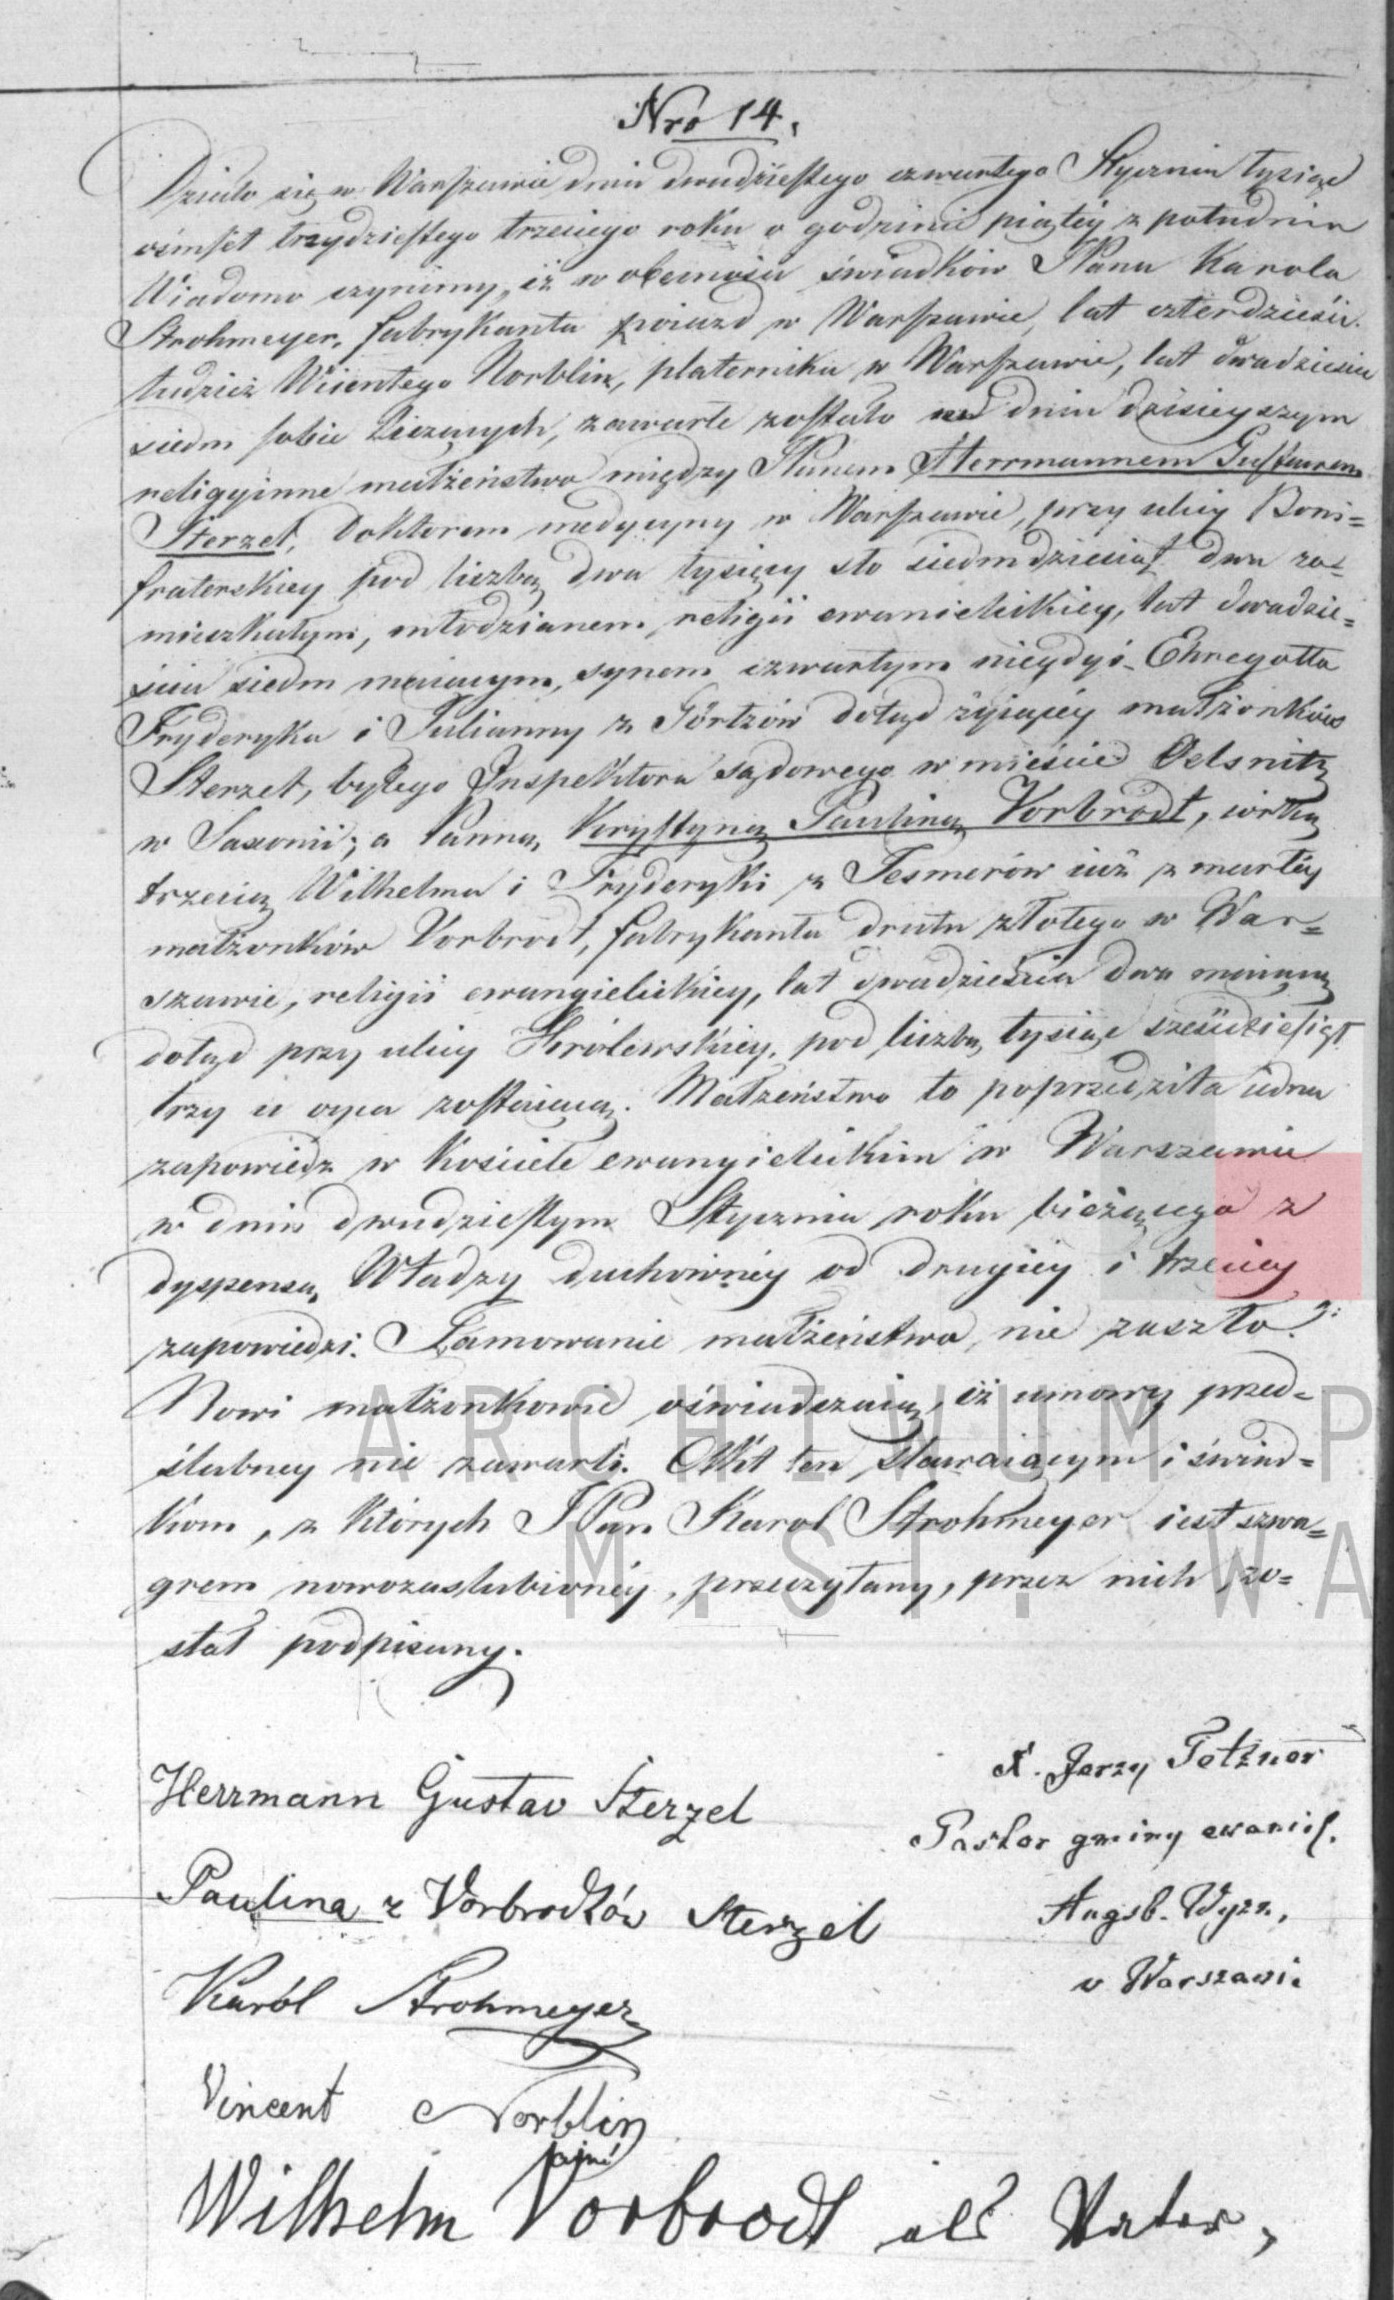 Nro 14.
Działo się w Warszawie dnia dwudziestego czwartego Stycznia tysiąc
ośmset trzydziestego trzeciego roku o godzinie piątéy z południa
Wiadomo czynimy, iż w obecności świadków JPana Karola
Strohmeyer, fabrykanta poiazd w Warszawie, lat czterdzieści
tudzież Wicentego Norblin, platernika w Warszawie, lat dwadzieścia
siedm sobie liczących, zawarte zostało w dniu dzisieyszym
religyinne małżeństwo między JPanem Herrmannem Gustawem
Sterzel, Doktorem medycyny w Warszawie, przy ulicy Boni=
fraterskiey pod liczbą dwa tysiący sto siedmdziesiąt dwa za=
mieszkałym, młodzianem, religii ewanielickiey, lat dwadzie=
ścia siedm maiącym, synem czwartym niegdyś Ehregotta
Fryderyka i Julianny z Görtzów dotąd żyiącéy małżonków
Sterzel, byłego Inspektora sądowego w mieście Oelsnitz
w Saxonii; a Panną Krystyną Pauliną Vorbrodt, córką
trzecią Wilhelma i Fryderyki z Tesmerów iuż zmarłéy
małżonków Vorbrodt, fabrykanta drutu złotego w War=
szawie, religii ewangielickiey, lat dwadzieścia dwa maiącą
dotąd przy ulicy Królewskiey, pod liczbą tysiąc sześćdziesiąt
trzy u oyca zostaiącą. Małżeństwo to poprzedziła iedna
zapowiedz w kościele ewangielickim w Warszawie
w dniu dwudziestym Stycznia roku bieżącego z
dyspensą Władzy duchownéy od drugiéy i trzeciey
zapowiedzi. Tamowanie małżeństwa nie zaszło.
Nowi małżonkowie oświadczaią, iż umowy przed=
ślubney nie zawarli. Akt ten stawaiącym i świad=
kom, z których JPan Karol Strohmeyer iest szwa=
grem nowozaślubionéy, przeczytany, przez nich zo=
stał podpisany.
Herrmann Gustav Sterzel
X. Jerzy Tetzner
Pastor gminy ewaniel.
Paulina z Vorbrodtów Sterzel
Augsb. Wyzn.
w Warszawie
Karól Strohmeyer
Vincent Norblin
Wilhelm Vorbrodt als Vater,
ARCHIWUM P
M. ST. WA